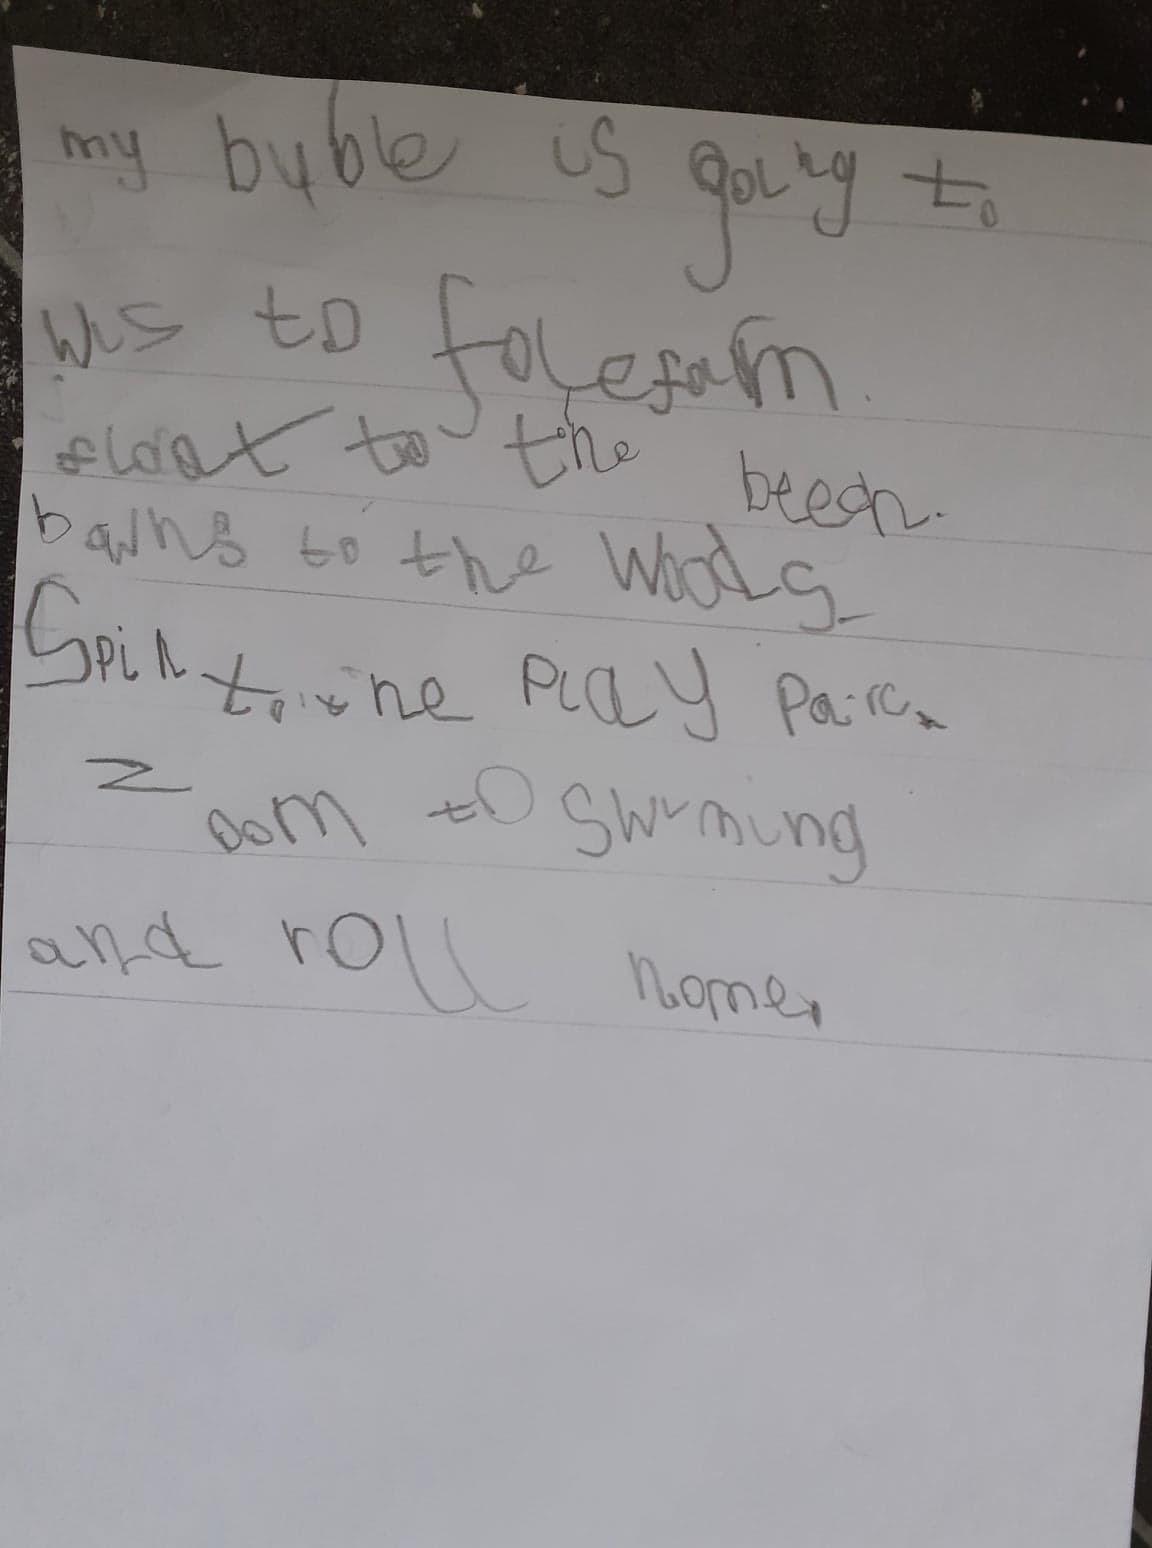 my byble is going to
wis to folefarm.
float to the beech.
bawns to the woods.
Spin to the Play Parc.
zoom to swiming
and roll home.